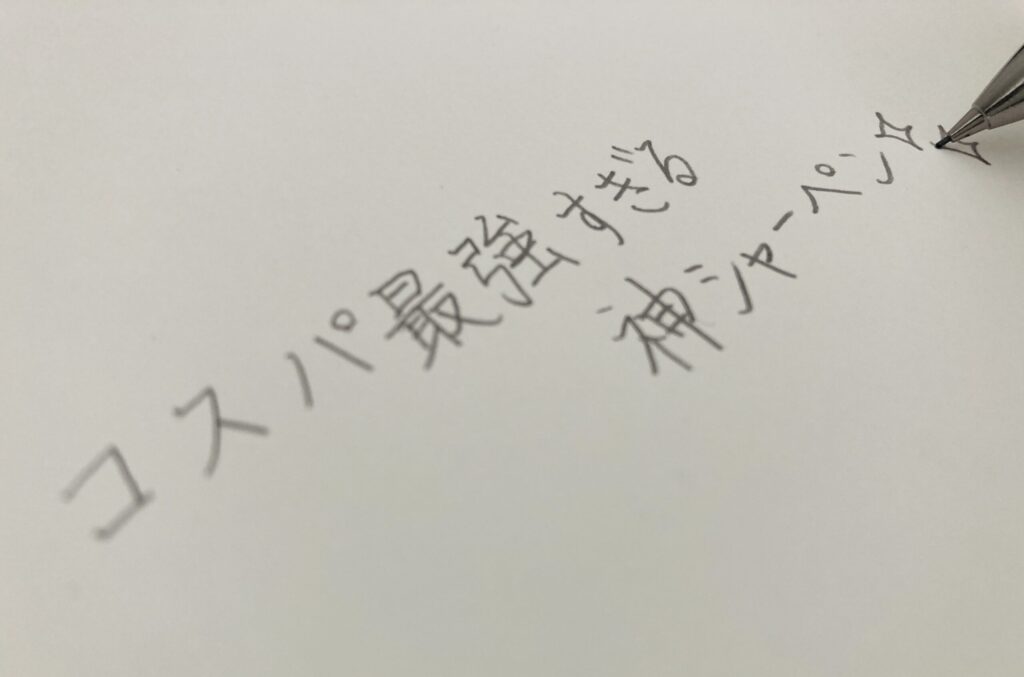 コスパ最強すぎる
神シャーペン